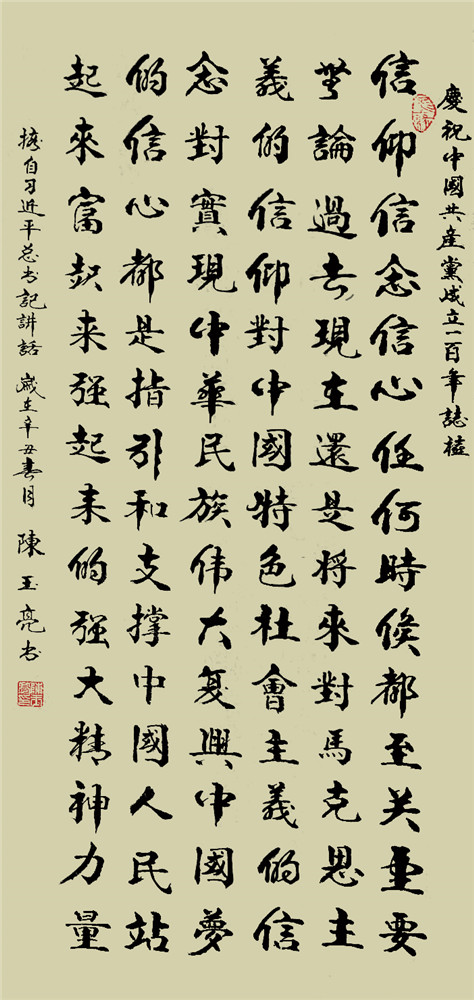 慶祝中國共産黨成立一百年誌
信仰信念信心任何時候都至关重要
無論過去現在還是将來對馬克思主
義的信仰對中國特色社會主義的信
念對實現中華民族伟大复興中國夢
的信心都是指引和支撑中國人民站
起來富起来强起来的强大精神力量
摘自习近平总书記讲話 歲在辛丑春月 陳玉亮书